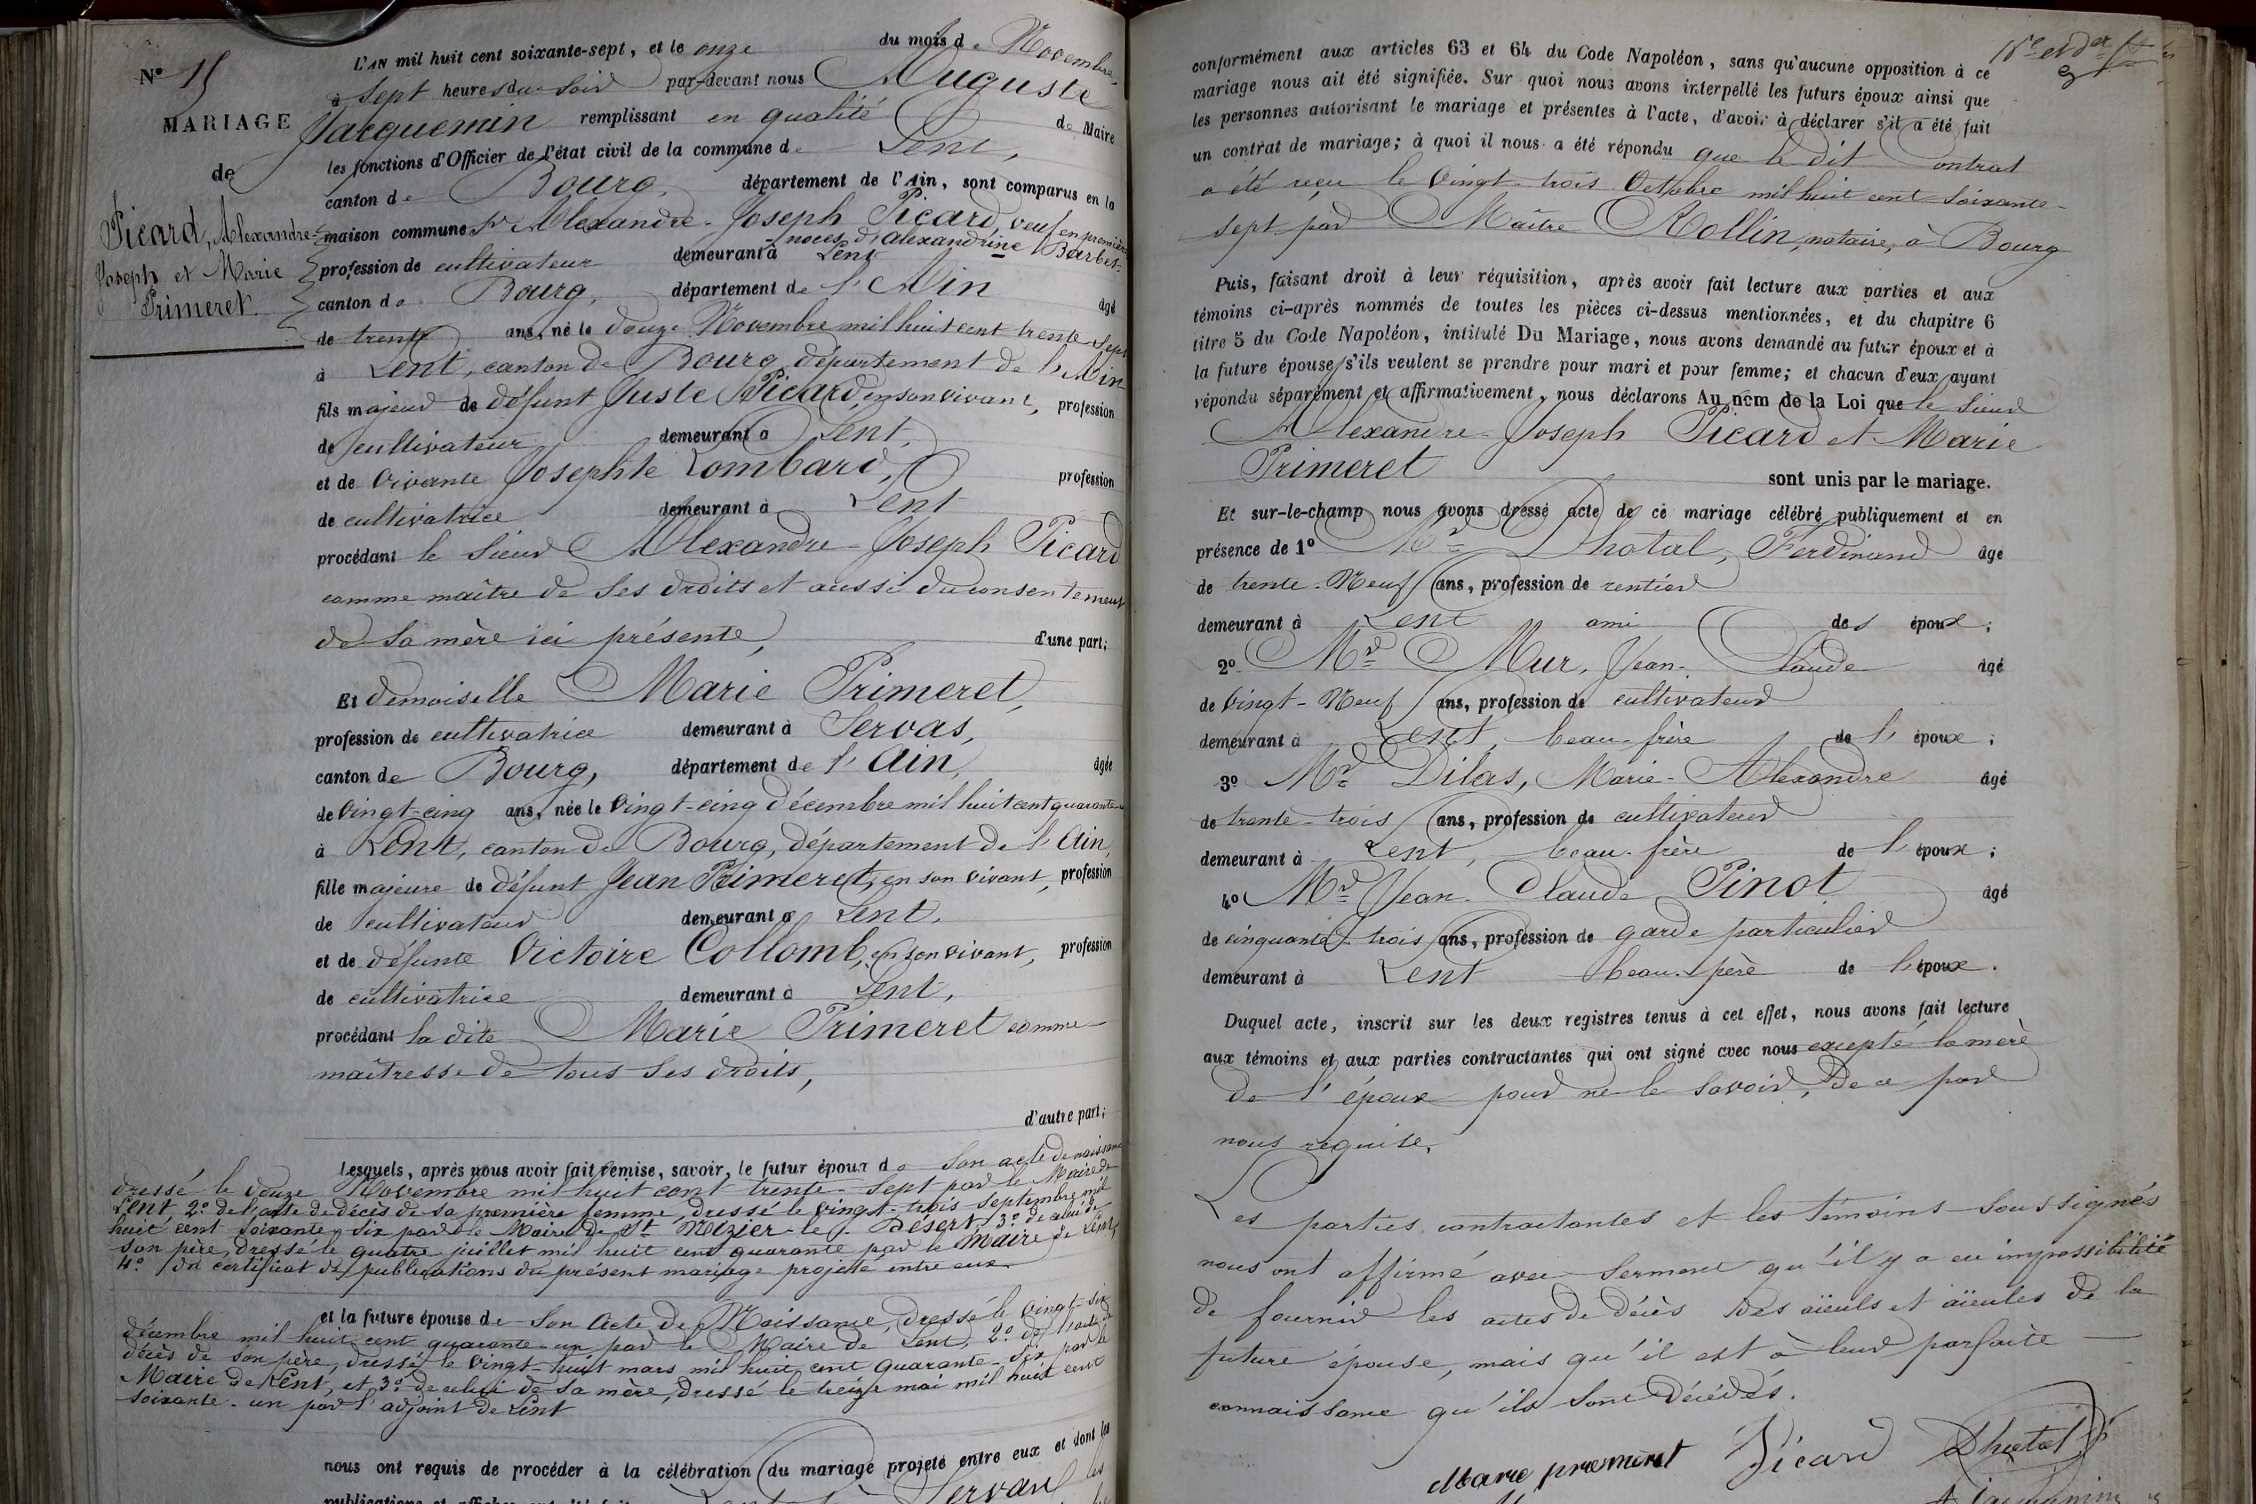 L'AN mil huit cent soixante-sept, et le onze du mois de Novembre
à sept heures du soir par-devant nous Auguste
Jacquemin remplissant en qualité de Maire
les fonctions d'Officier de l'état civil de la commune de Lent,
canton de Bourg, département de l'Ain, sont comparus en la
maison commune Sr Alexandre-Joseph Picard, veuf en premières
noces d'Alexandrine Barbet
profession de cultivateur demeurant à Lent
canton de Bourg, département de l'Ain âgé
de trente ans, né le douze Novembre mil huit cent trente-sept
à Lent, canton de Bourg, département de l'Ain
fils majeur de défunt Juste Picard, en son vivant, profession
de cultivateur demeurant à Lent,
et de vivante Josephte Lombard, profession
de cultivatrice demeurant à Lent
procédant le Sieur Alexandre-Joseph Picard
comme maître de ses droits et aussi du consentement
de sa mère ici présente, d'une part;
Et demoiselle Marie Primeret,
profession de cultivatrice demeurant à Servas,
canton de Bourg, département de l'Ain, âgée
de vingt-cinq ans, née le vingt-cinq décembre mil huit cent quarante-un
à Lent, canton de Bourg, département de l'Ain,
fille majeure de défunt Jean Primeret, en son vivant, profession
de cultivateur demeurant à Lent,
et de défunte Victoire Collomb, en son vivant, profession
de cultivatrice demeurant à Lent,
procédant la dite Marie Primeret comme
maîtresse de tous ses droits,
d'autre part;
Lesquels, après nous avoir fait remise, savoir, le futur époux de son acte de naissance
dressé le douze Novembre mil huit cent trente-sept par le Maire de
Lent, 2° de l'acte de décès de sa première femme, dressé le vingt-trois septembre mil
huit cent soixante-six par le Maire de St Nizier-le-Désert, 3° de celui de
son père, dressé le quatre juillet mil huit cent quarante par le Maire de Lent,
4° du certificat de publications du présent mariage projeté entre eux
et la future épouse de son acte de Naissance, dressé le vingt-six
décembre mil huit cent quarante-un par le Maire de Lent, 2° de l'acte de
décès de son père, dressé le vingt-huit mars mil huit cent quarante-six par le
Maire de Lent, et 3° de celui de sa mère, dressé le treize mai mil huit cent
soixante-un par l'adjoint de Lent
nous ont requis de procéder à la célébration du mariage projeté entre eux et dont les
Servas
N° 15
MARIAGE
de
Picard, Alexandre-
Joseph et Marie
Primeret
conformément aux articles 63 et 64 du Code Napoléon, sans qu'aucune opposition à ce
mariage nous ait été signifiée. Sur quoi nous avons interpellé les futurs époux ainsi que
les personnes autorisant le mariage et présentes à l'acte, d'avoir à déclarer s'il a été fait
un contrat de mariage; à quoi il nous a été répondu que le dit Contrat
a été reçu le vingt-trois Octobre mil huit cent soixante-
sept par Maître Rollin, notaire, à Bourg
Puis, faisant droit à leur réquisition, après avoir fait lecture aux parties et aux
témoins ci-après nommés de toutes les pièces ci-dessus mentionnées, et du chapitre 6
titre 5 du Code Napoléon, intitulé Du Mariage, nous avons demandé au futur époux et à
la future épouse s'ils veulent se prendre pour mari et pour femme; et chacun d'eux ayant
répondu séparément et affirmativement, nous déclarons Au nom de la Loi que le Sieur
Alexandre-Joseph Picard et Marie
Primeret sont unis par le mariage.
Et sur-le-champ nous avons dressé acte de ce mariage célébré publiquement et en
présence de 1° Mr Dhotal, Ferdinand âgé
de trente-Neuf ans, profession de rentier
demeurant à Lent ami des époux;
2° Mr Mur, Jean-Claude âgé
de vingt-Neuf ans, profession de cultivateur
demeurant à Lent, beau-frère de l'époux;
3° Mr Dilas, Marie-Alexandre âgé
de trente-trois ans, profession de cultivateur
demeurant à Lent, beau-frère de l'époux;
4° Mr Jean-Claude Pinot âgé
de cinquante-trois ans, profession de garde particulier
demeurant à Lent beau-père de l'époux.
Duquel acte, inscrit sur les deux registres tenus à cet effet, nous avons fait lecture
aux témoins et aux parties contractantes qui ont signé avec nous excepté la mère
de l'époux pour ne le savoir, de ce par
nous requise.
Les parties contractantes et les témoins soussignés
nous ont affirmé avec serment qu'il y a eu impossibilité
de fournir les actes de décès des aïeuls et aïeules de la
future épouse, mais qu'il est à leur parfaite
connaissance qu'ils sont décédés.
Marie premeret Picard Dhotal